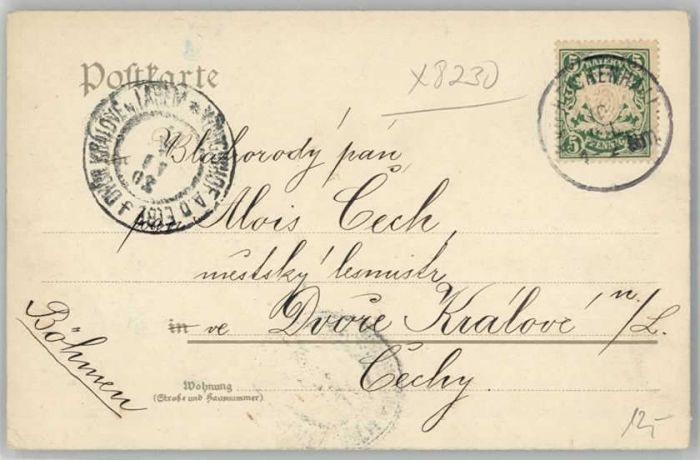 Postkarte
X8230
BAYERN
5 5
5 PFENNIG 5
DVŮR KRÁLOVÉ n. LABEM * KÖNIGINHOF A. D. ELBE
Blahorody pán,
pan Alois Čech,
městský lesmistr
in ve Dvoře Králové n/L.
Čechy.
Böhmen
Wohnung
(Straße und Hausnummer)
12,-